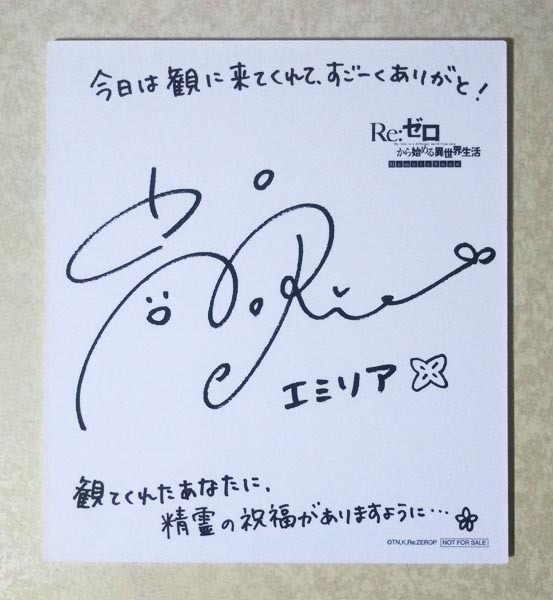 今日は観に来てくれて、すごーくありがと!
Re:ゼロ
から始める異世界生活
Memory Snow
Rie
エミリア
観てくれたあなたに、
精霊の祝福がありますように…
©TN,K,Re:ZEROP NOT FOR SALE